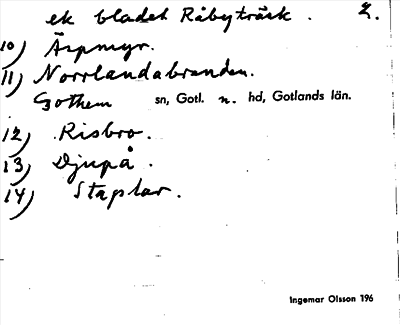 ek bladet Råbyträsk. 2.
10) Äspmyr.
11) Norrlandabranden.
Gothem sn, Gotl. n. hd, Gotlands län.
12) Risbro.
13) Djupå.
14) Staplar.
Ingemar Olsson 196